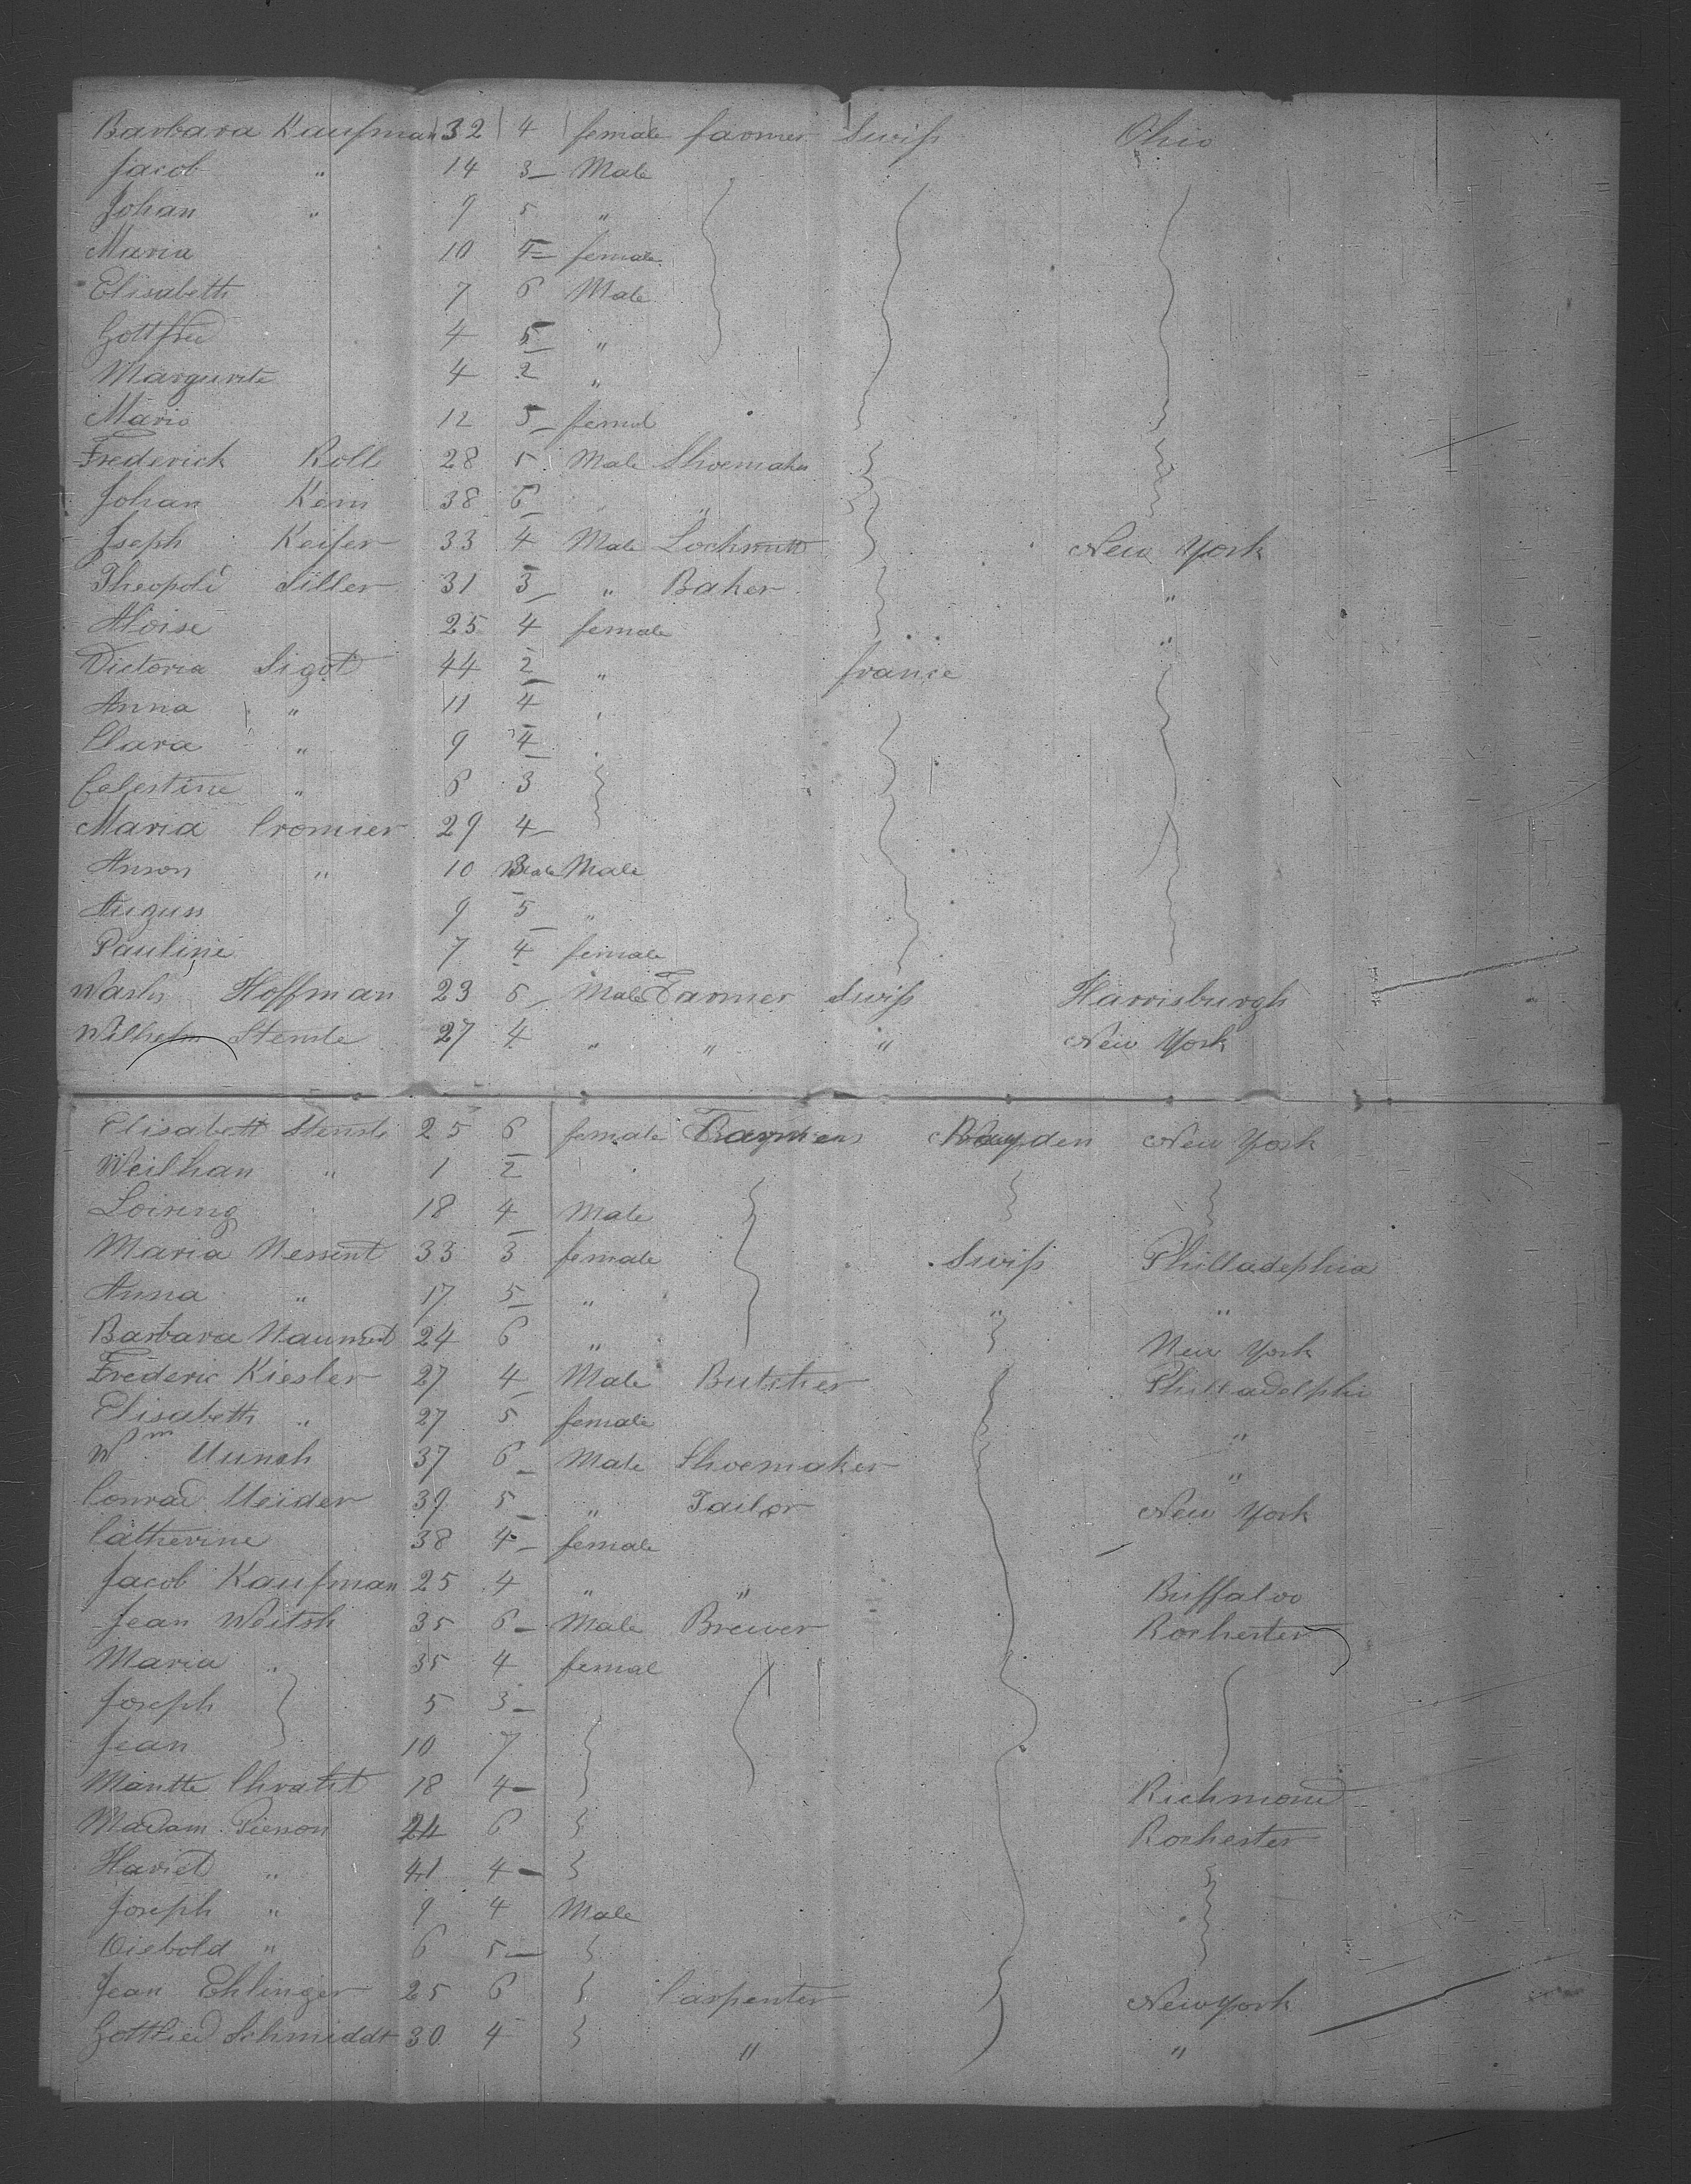 Barbara Kaufman 32 4 female farmer Swiss Ohio
Jacob " 14 3 Male
Johan " 9 5 "
Maria 10 4 female
Elisabeth 7 6 Male
Gottfried 4 5 "
Margurite 4 2 "
Maria 12 5 femal
Frederick Roll 28 5 Male Shoemaker
Johan Kem 38 6 "
Joseph Keifer 33 4 Male Locksmith New York
Siller 31 3 " Baker "
Aloise 25 4 female "
Victoria Sigot 44 2 " france
Anna " 11 4 "
Clara " 9 4
Celestine " 6 3
Maria Cromier 29 4
Anson " 10 Male
August 9 5 "
Pauline 7 4 female
Hoffman 23 5 Male Farmer Swiss Harrisburgh
Wilhelm Stemle 27 4 " " " New York
Elisabett Stemle 25 6 female New York
Weilhan " 1 2
Loireng 18 4 Male
Maria Nessent 33 3 female Swiss Philladephia
Anna " 17 5 " " "
Barbara 24 6 " New York
Frederic Kiesler 27 4 Male Butcher Philladelphi
Elisabeth " 27 5 female "
Wm Munch 37 6 Male Shoemaker "
Conrad Meider 39 5 " Tailor New York
Catherine 38 4 female
Jacob Kaufman 25 4 " " Buffaloo
Jean Weitsh 35 6 Male Brewer Rochester
Maria " 35 4 femal
Joseph 5 3
Jean 10 7
18 4 Richmond
Madam Pierson 24 6 Rochester
Hariet " 41 4
Joseph " 9 4 Male
Diebold " 6 5
Jean Ehlinger 25 6 Carpenter New york
Gottlied Schmiddt 30 4 " "